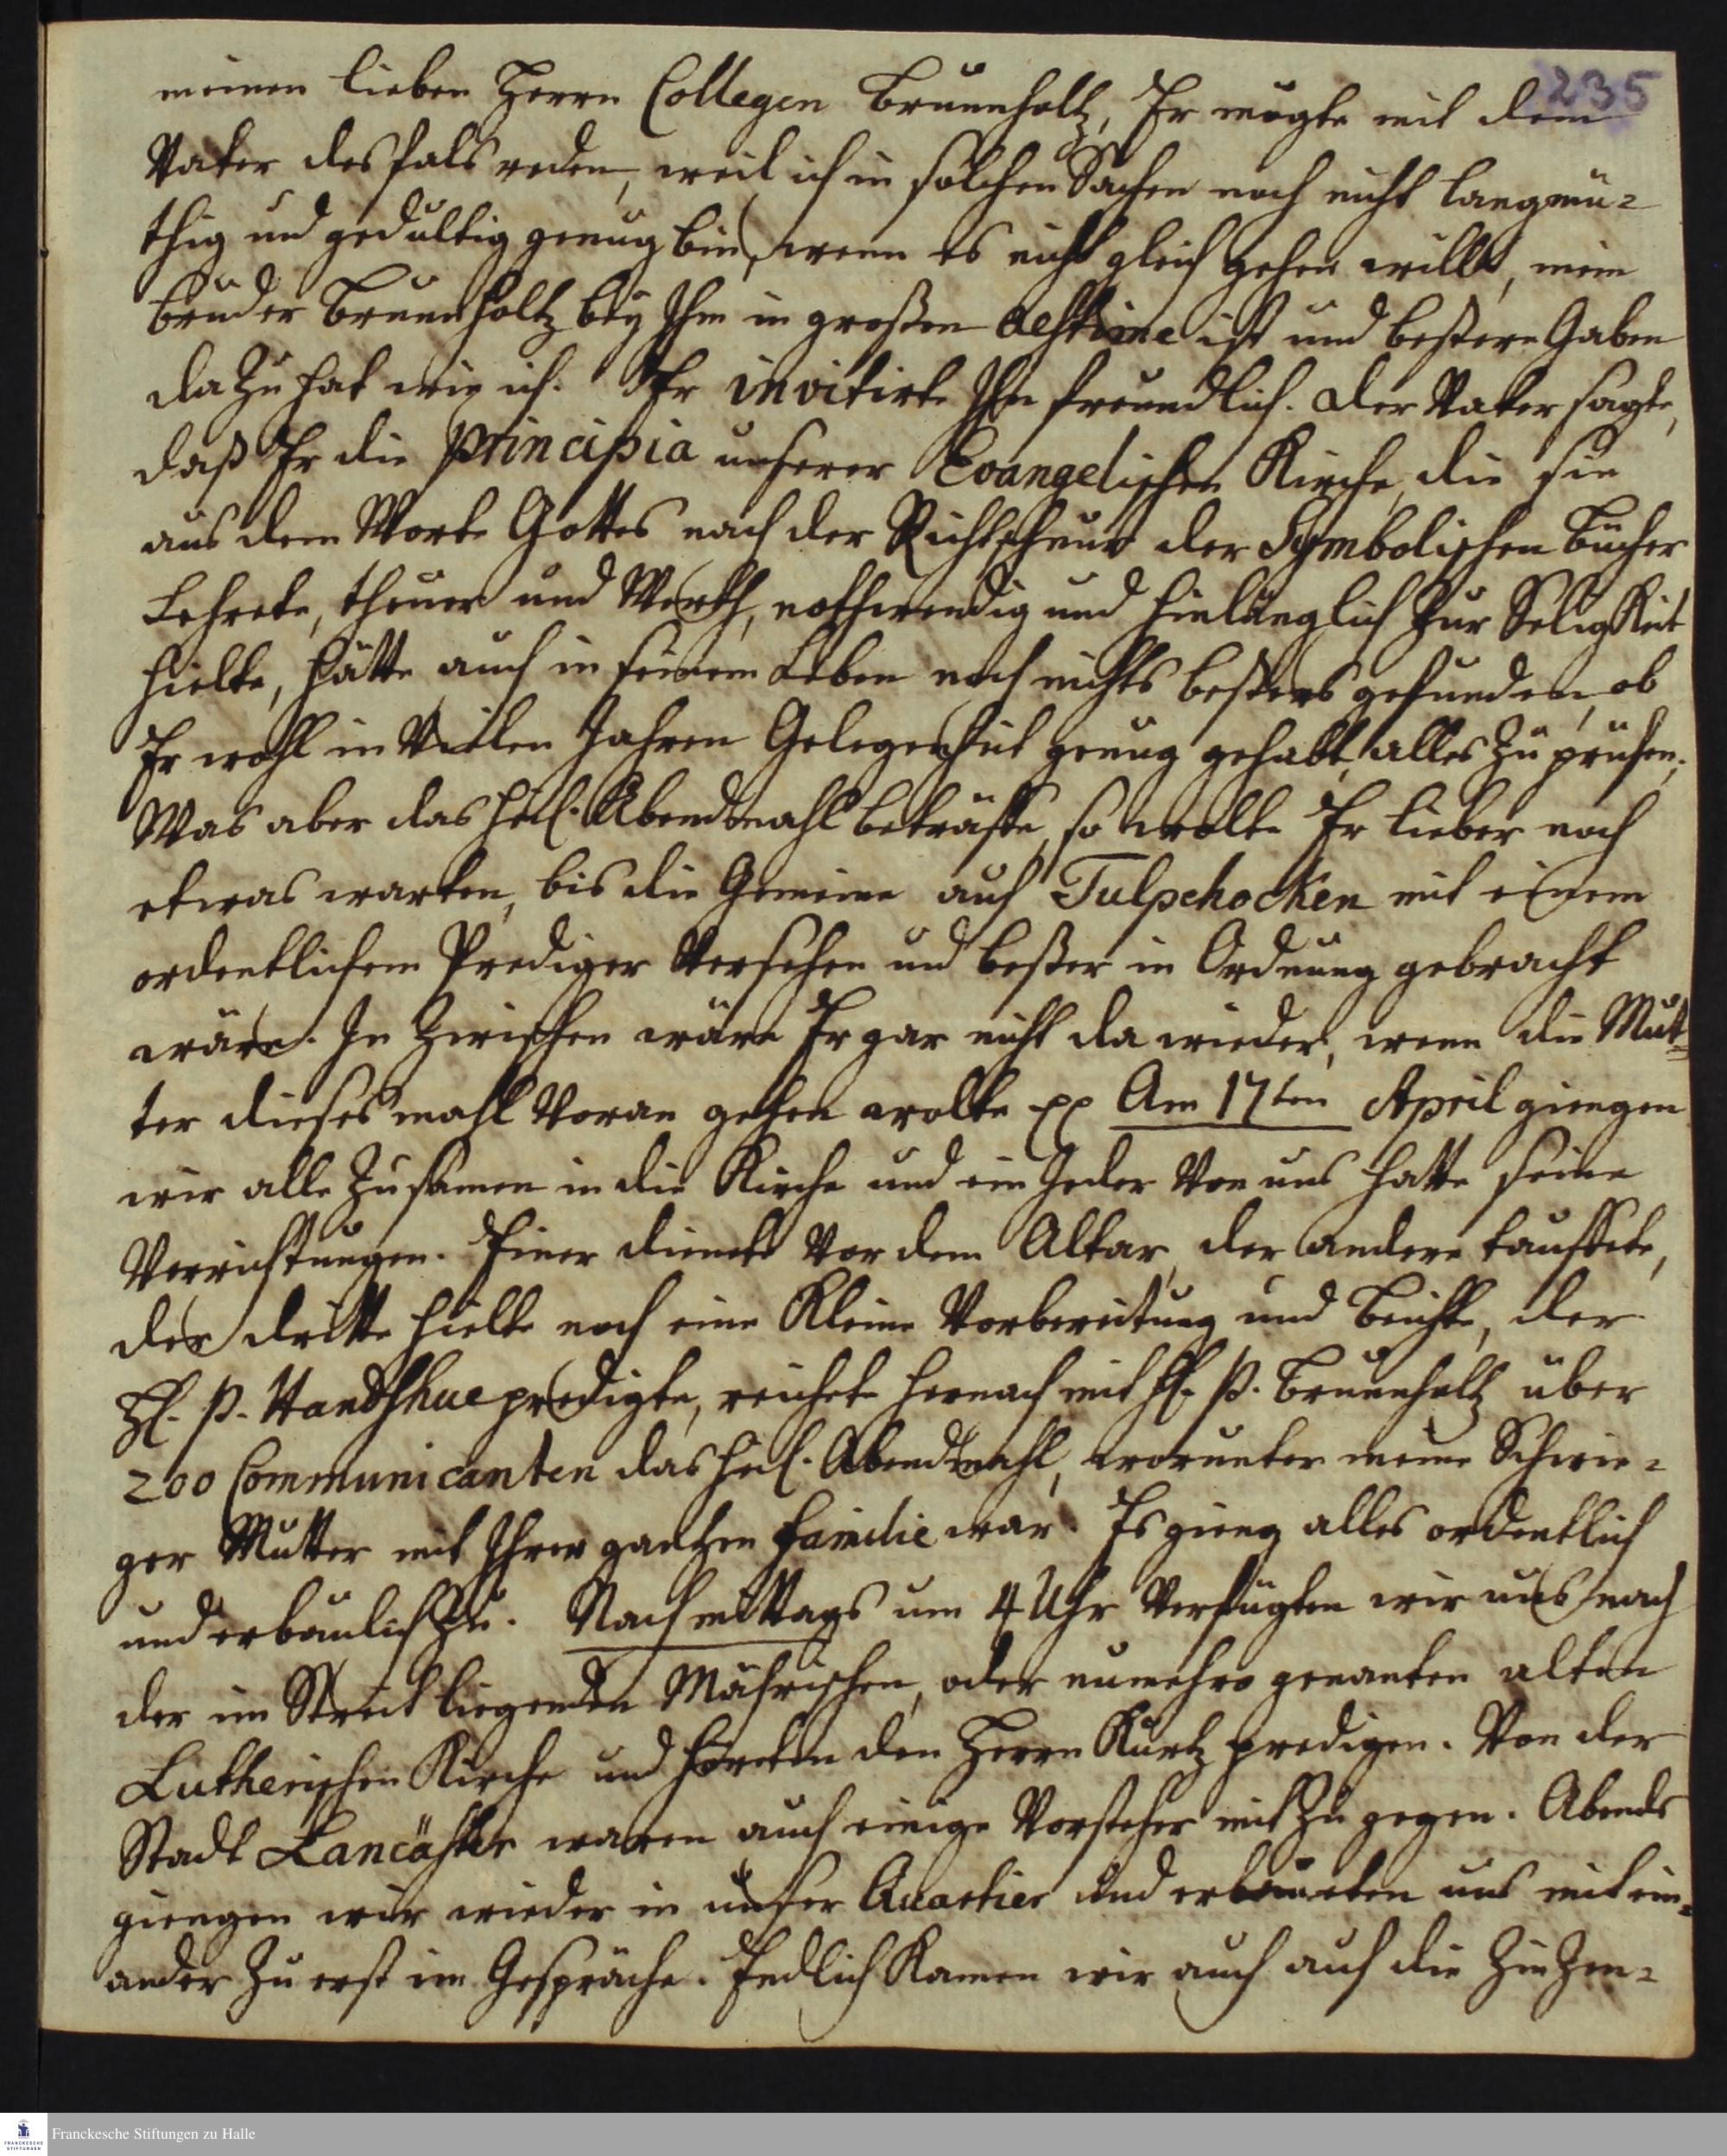 235
meinen lieben Herrn Collegen Brunnholtz, Er mögte mit dem
Vater desfals reden, weil ich in solchen Sachen noch nicht langmü-
thig und gedultig genug bin, wenn es nicht gleich gehen will, mein
bruder Brunnholtz bey Ihm in großen aestime ist und beßere Gaben
dazu hat wie ich. Er invitirte Ihn freundlich. Der Vater sagte,
daß Er die principia unserer Evangelischen Kirche, die sie
aus dem Worte Gottes nach der Richtschnur der Symbolischen Bücher
Lehrete, theuer und Werth, nothwendig und hinlänglich zur Seligkeit
hielte, hätte auch in seinem Leben noch nichts beßers gefunden, ob
Er wohl in Vielen Jahren Gelegenheit genug gehabt, alles zu prüfen.
Was aber das heil. Abendmahl beträffe, so wolte Er lieber noch
etwas warten, bis die Gemeine auf Tulpehocken mit einem
ordentlichem Prediger Versehen und beßer in Ordnung gebracht
wäre. In zwischen wäre Er gar nicht da wieder, wenn die Mut-
ter dieses mahl Voran gehen wolte pp Am 17ten April giengen
wir alle zusamen in die Kirche und ein Jeder Von uns hatte seine
Verrichtungen. Einer dienete Vor dem Altar, der andere tauffete,
der dritte hielte noch eine Kleine Vorbereitung und Beichte, der
H. P. Handshue predigte, reichete hernach mit H. P. Brunnholtz über
200 Communicanten das heil. Abendmahl, worunter meine Schwie-
ger Mutter mit Ihrer gantzen familie war. Es gieng alles ordentlich
und erbaulich zu. Nachmittags um 4 Uhr Verfügten wir uns nach
der im Streit liegenden Mährischen, oder numehro genanten alten
Lutherischen Kirche und höreten den Herrn Kurtz predigen. Von der
Stadt Lancäster waren auch einige Vorsteher mit zu gegen. Abends
giengen wir wieder in unser Quartier und erbaueten uns mit ein-
ander zu erst im Gespräche. Endlich Kamen wir auch auf die Zinzen-
Franckesche Stiftungen zu Halle
FRANCKESCHE
STIFTUNGEN